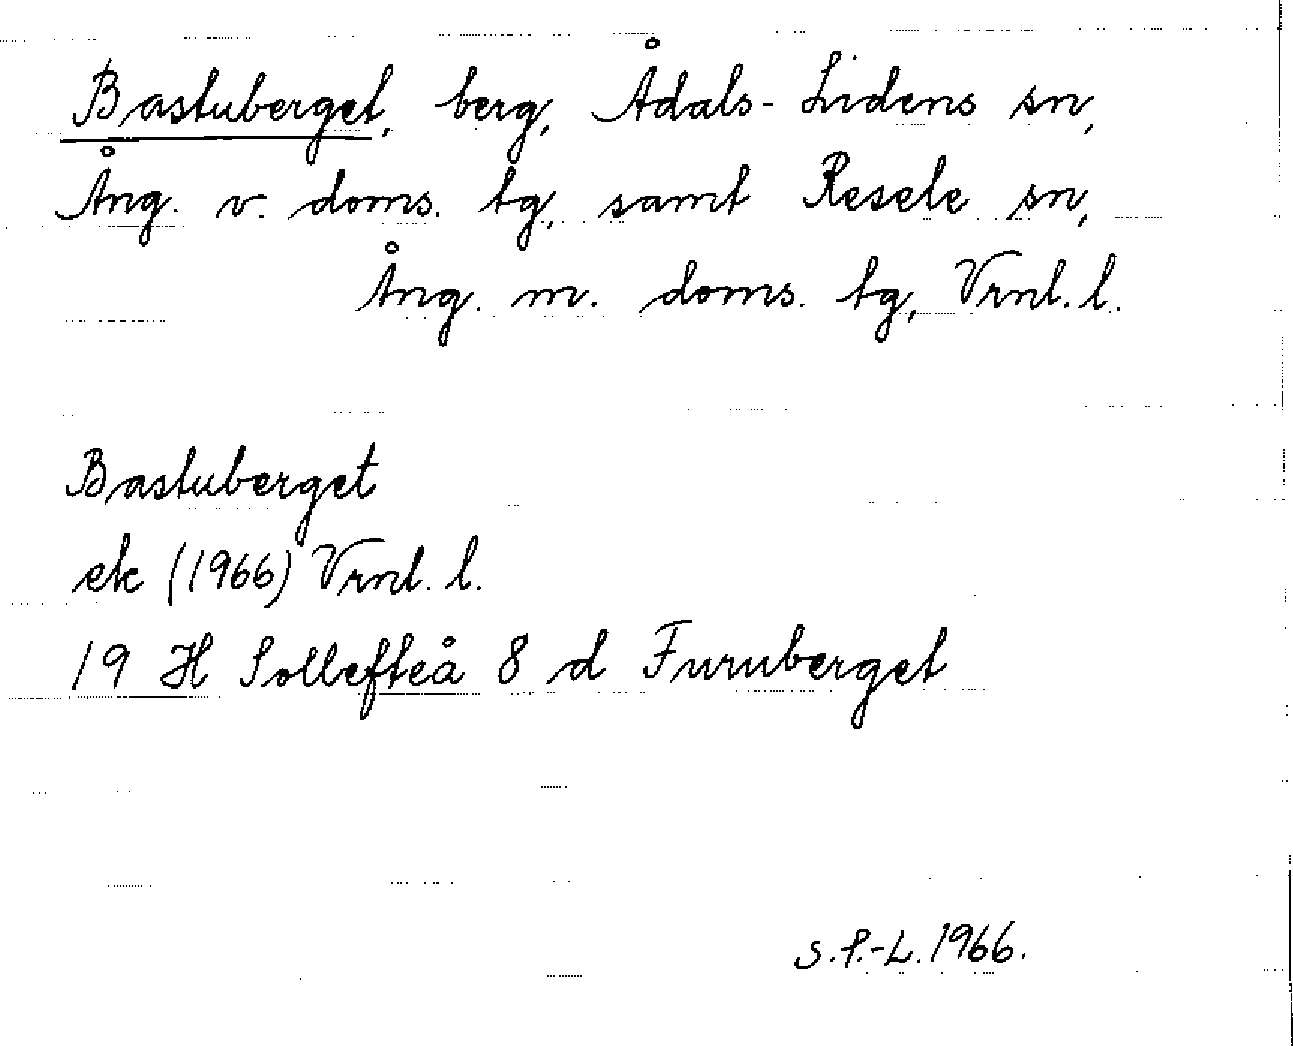 Bastuberget, berg, Ådals-Lidens sn,
Ång. v. doms. tg, samt Resele sn,
Ång. m. doms. tg, Vrnl. l.
Bastuberget
ek (1966) Vrnl. l.
19 H Sollefteå 8 d Furuberget
S.P.-L. 1966.